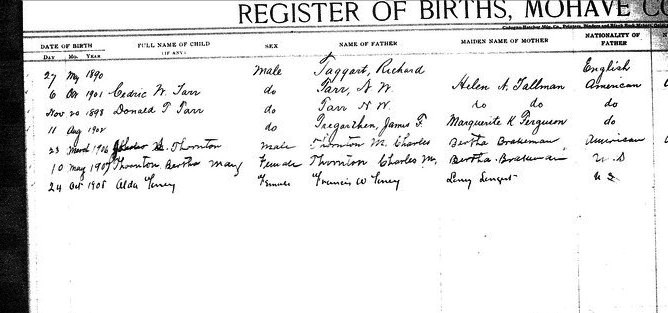 REGISTER OF BIRTHS, MOHAVE CO
DATE OF BIRTH FULL NAME OF CHILD SEX NAME OF FATHER MAIDEN NAME OF MOTHER NATIONALITY OF
DAY Mo. YEAR (IF ANY) FATHER
27 My 1890 Male Taggart, Richard English
6 Oct 1901 Cedric W. Tarr do Tarr, N W. Helen A. Tallman American
Nov 20 1898 Donald T Tarr do Tarr N W. do do do
11 Aug 1902 do Tregarthen, James F. Marguerite K Ferguson do
23 March 1906 Thornton male Thornton M. Charles Bertha Brakeman American
10 May 1907 Thornton Bertha May Female Thornton Charles M. Bertha Brakeman U. S
24 Oct 1905 Alda Female Francis W U S